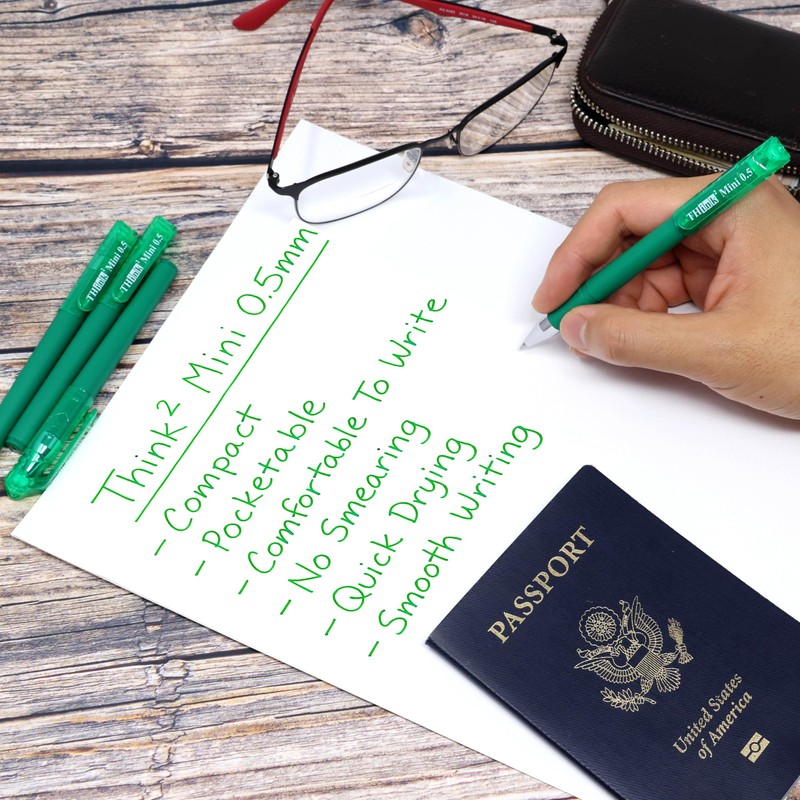 Think² Mini 0.5mm
- Compact
- Pocketable
- Comfortable To Write
- No Smearing
- Quick Drying
- Smooth Writing
THinks² Mini 0.5
THinks² Mini 0.5
THinks² Mini 0.5
PASSPORT
United States
of America